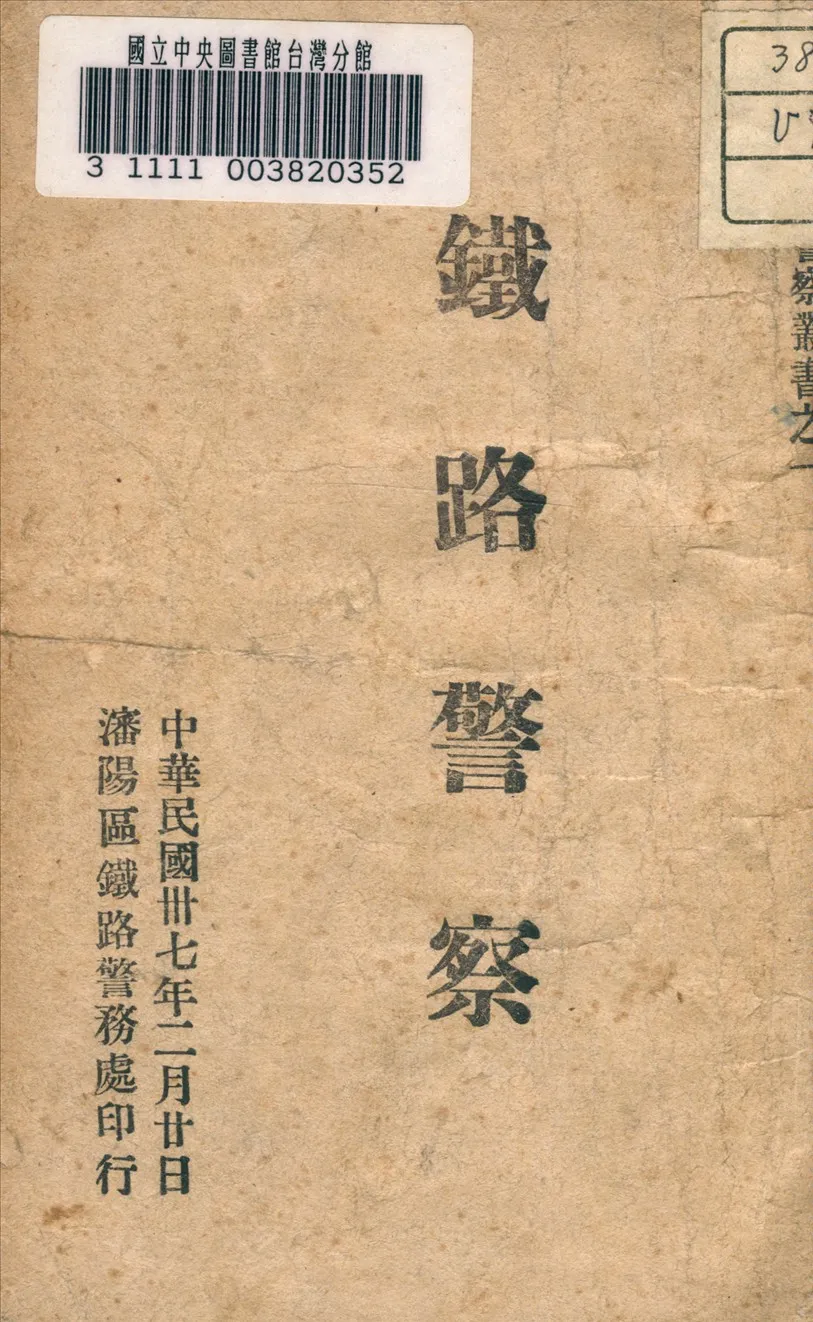 國立中央圖書館台灣分館
3 1111 003820352
38
警察叢書之一
鐵路警察
中華民國卅七年二月廿日
瀋陽區鐵路警務處印行